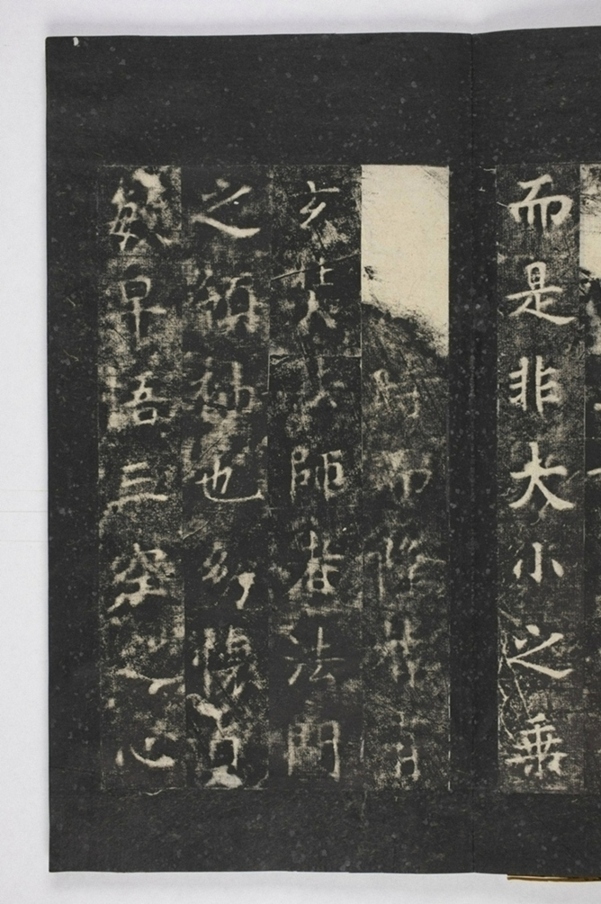 而是非大小之乘
時而隆替有
玄奘法師者法門
之領袖也幼懷貞
敏早悟三空之心